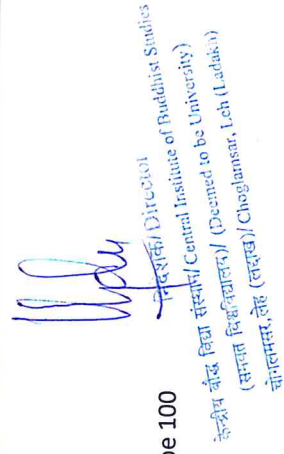 निदेशक/Director
केन्द्रीय बौद्ध विद्या संस्थान/Central Institute of Buddhist Studies
(समवत विश्वविद्यालय)/ (Deemed to be University)
चोगलमसर, लेह (लद्दाख)/ Choglamsar, Leh (Ladakh)
pe 100